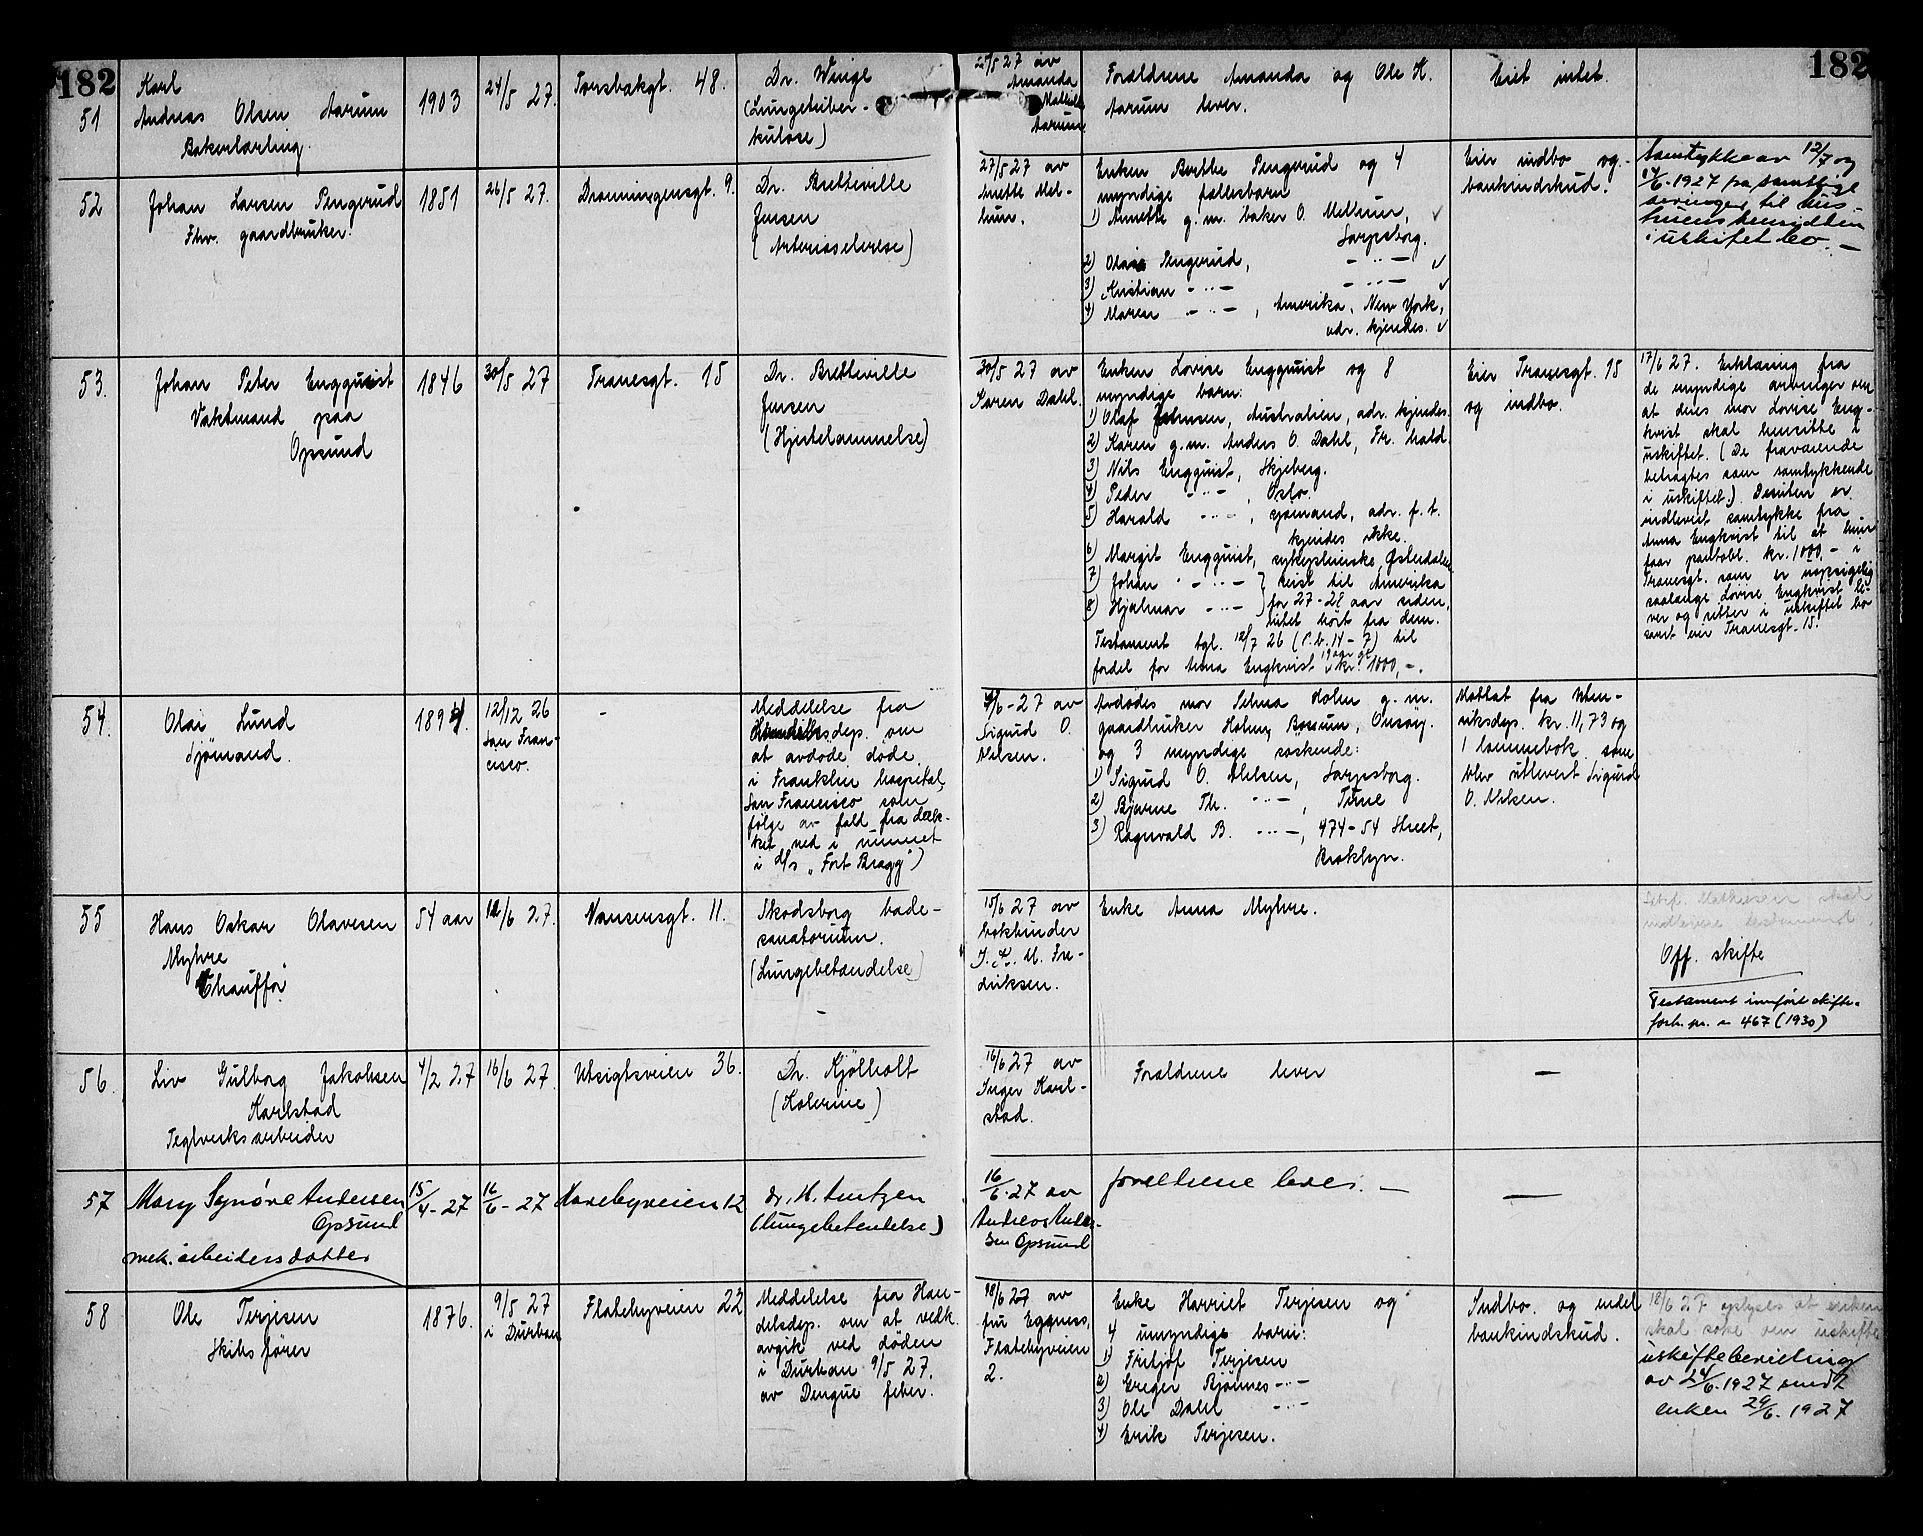 182
182
51
Karl
Andreas Olsen Aarum
Bakerlærling.
1903
24/5 27.
Torsbakgt. 48.
Dr. Winge
(Lungetuber-
kulose)
25/5 27 av
Amanda
Mathilde
Aarum
Forældrene Amanda og Ole H.
Aarum lever.
Eiet intet.
52
Johan Larsen Pengerud
Fhv. gaardbruker.
1851
26/5 27.
Dronningensgt. 9.
Dr. Bretteville
Jensen
(Arteriosclerose)
27/5 27 av
Anette Mel-
hun.
Enken Berthe Pengerud og 4
myndige fællesbarn
1) Annette g.m. baker O. Mellum, ✓
Sarpsborg.
2) Olaus Pengerud, - ·· - ✓
3) Kristian - ·· - - ·· - ✓
4) Maren - ·· - , Amerika, New York,
adr. kjendes. ✓
Eier indbo og
bankindskud.
Samtykke av 12/7 og
14/6. 1927 fra samtlige
arvinger til hus-
truens hensidden
i uskiftet bo. -
53.
Johan Peter Engquist
Vaktmand paa
Opsund
1846
30/5 27
Tranesgt. 15
Dr. Bretteville
Jensen
(Hjertelammelse)
30/5 27 av
Karen Dahl.
Enken Lovise Engquist og 8
myndige barn:
1) Olaf Johnsen, Australien, adr. kjendes.
2) Karen g.m. Anders O. Dahl, Fr. hald
3) Nils Engquist, Skjeberg.
4) Peder - ·· - , Oslo.
5) Harald - ·· - , sjømand, adr. p.t.
kjendes ikke.
6) Margit Engquist, sykepleierske, Østerdalen
7) Johan - ·· - } reist til Amerika
8) Hjalmar - ·· - } for 27-28 aar siden,
intet hørt fra dem.
Testament tgl. 12/7 26 (P.b. 14 - 7) til
fordel for Anna Engkvist kr. 1000,-.
Eier Tranesgt. 15
og indbo.
17/6 27. Erklæring fra
de myndige arvinger om
at deres mor Lovise Eng-
kvist skal hensitte i
uskiftet. (De fraværende
betragtes som samtykkende
i uskiftet.) Desuten er
indlevert samtykke fra
Anna Engkvist til at hun
faar pantobl. kr. 1000,- i
Tranesgt. som er uopsigelig
saalænge Lovise Engkvist le-
ver og sitter i uskiftet bo
samt eier Tranesgt. 15.
54.
Olai Lund
Sjømand.
1894.
12/12 26
San Fran-
cisco.
-
Meddelelse fra
Handelsdep. om
at avdøde døde
i Franklin hospital,
San Francisco som
følge av fald fra dæk-
ket ned i rummet
i d/s "Fort Bragg")
4/6 - 27 av
Sigurd O.
Nilsen.
Avdødes mor Selma Holm g.m.
gaardbruker Holm, Borrum, Onsøy.
og 3 myndige søskende:
1) Sigurd O. Nilsen, Sarpsborg.
2) Bjarne Th. - ·· - , Tune
3) Ragnvald B. - ·· - , 474 - 54 Street,
Broklyn.
Mottat fra Uten-
riksdep. kr. 11,73 og
1 lommebok som
blev utlevert Sigurd
O. Nilsen.
55
Hans Oskar Olavesen
Myhre
Chauffør
54 aar
12/6 27.
Nansensgt. 11.
Skodsborg bade-
sanatorium.
(Lungebetændelse)
-
15/6 27 av
bokbinder
Fre-
driksen.
Enke Anna Myhre.
skal
indlevere testament.
Off. skifte
Testament innført skifte-
forh. pr. s 467 (1930)
56.
Liv Gulborg Jakobsen
Karlstad
Teglverksarbeider
4/2 27
16/6 27.
Utsigtsveien 36.
Dr. Kjølholt
(Kolerine)
16/6 27 av
Inger Karl-
stad.
Forældrene lever
-
57
Mary Synøve Andersen
Opsund
mek. arbeiders datter
15/4 - 27
16/6 - 27
Havebyveien 12
dr. H. Arentzen
(Lungebetendelse)
16/6. 27 av
Andreas Ander-
sen Opsund
foreldrene lever. -
-
58
Ole Terjesen
Skibsfører
1876.
9/5 27
i Durban
Flatebyveien 22
Meddelelse fra Han-
delsdep. om at vedk.
avgik ved døden
i Durban 9/5 27.
av Dengue feber.
18/6 27 av
fru Eggness,
Flatebyveien
2.
Enke Harriet Terjesen og
4 umyndige barn:
1) Fritjof Terjesen
2) Greger Bjønnes - ·· -
3) Ole Dahl - ·· -
4) Erik Terjesen.
Indbo og endel
bankindskud.
18/6 27 oplyses at enken
skal søke om uskifte
uskiftebevilling
av 24/6. 1927 sendt
enken 29/6. 1927